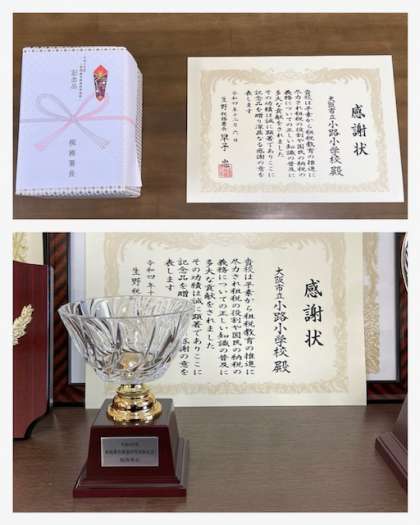 記念品
税務署長
感謝状
大阪市立小路小学校殿
貴校は平素から租税教育の推進に
尽力され租税の役割や国民の納税の
義務についての正しい知識の普及に
多大な貢献をされました
その功績は誠に顕著でありここに
記念品を贈り深甚なる感謝の意を
表します
生野税務署長
感謝状
大阪市立小路小学校殿
貴校は平素から租税教育の推進に
尽力され租税の役割や国民の納税の
義務についての正しい知識の普及に
多大な貢献をされました
その功績は誠に顕著でありここに
記念品を贈
感謝の意を
表します
令和四年十
生野税